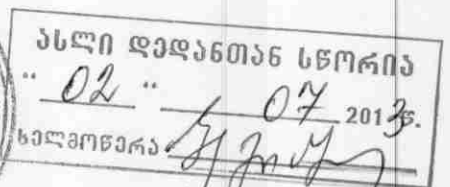 ასლი დედანთან სწორია
" 02 " 07 2013 წ.
ხელმოწერა